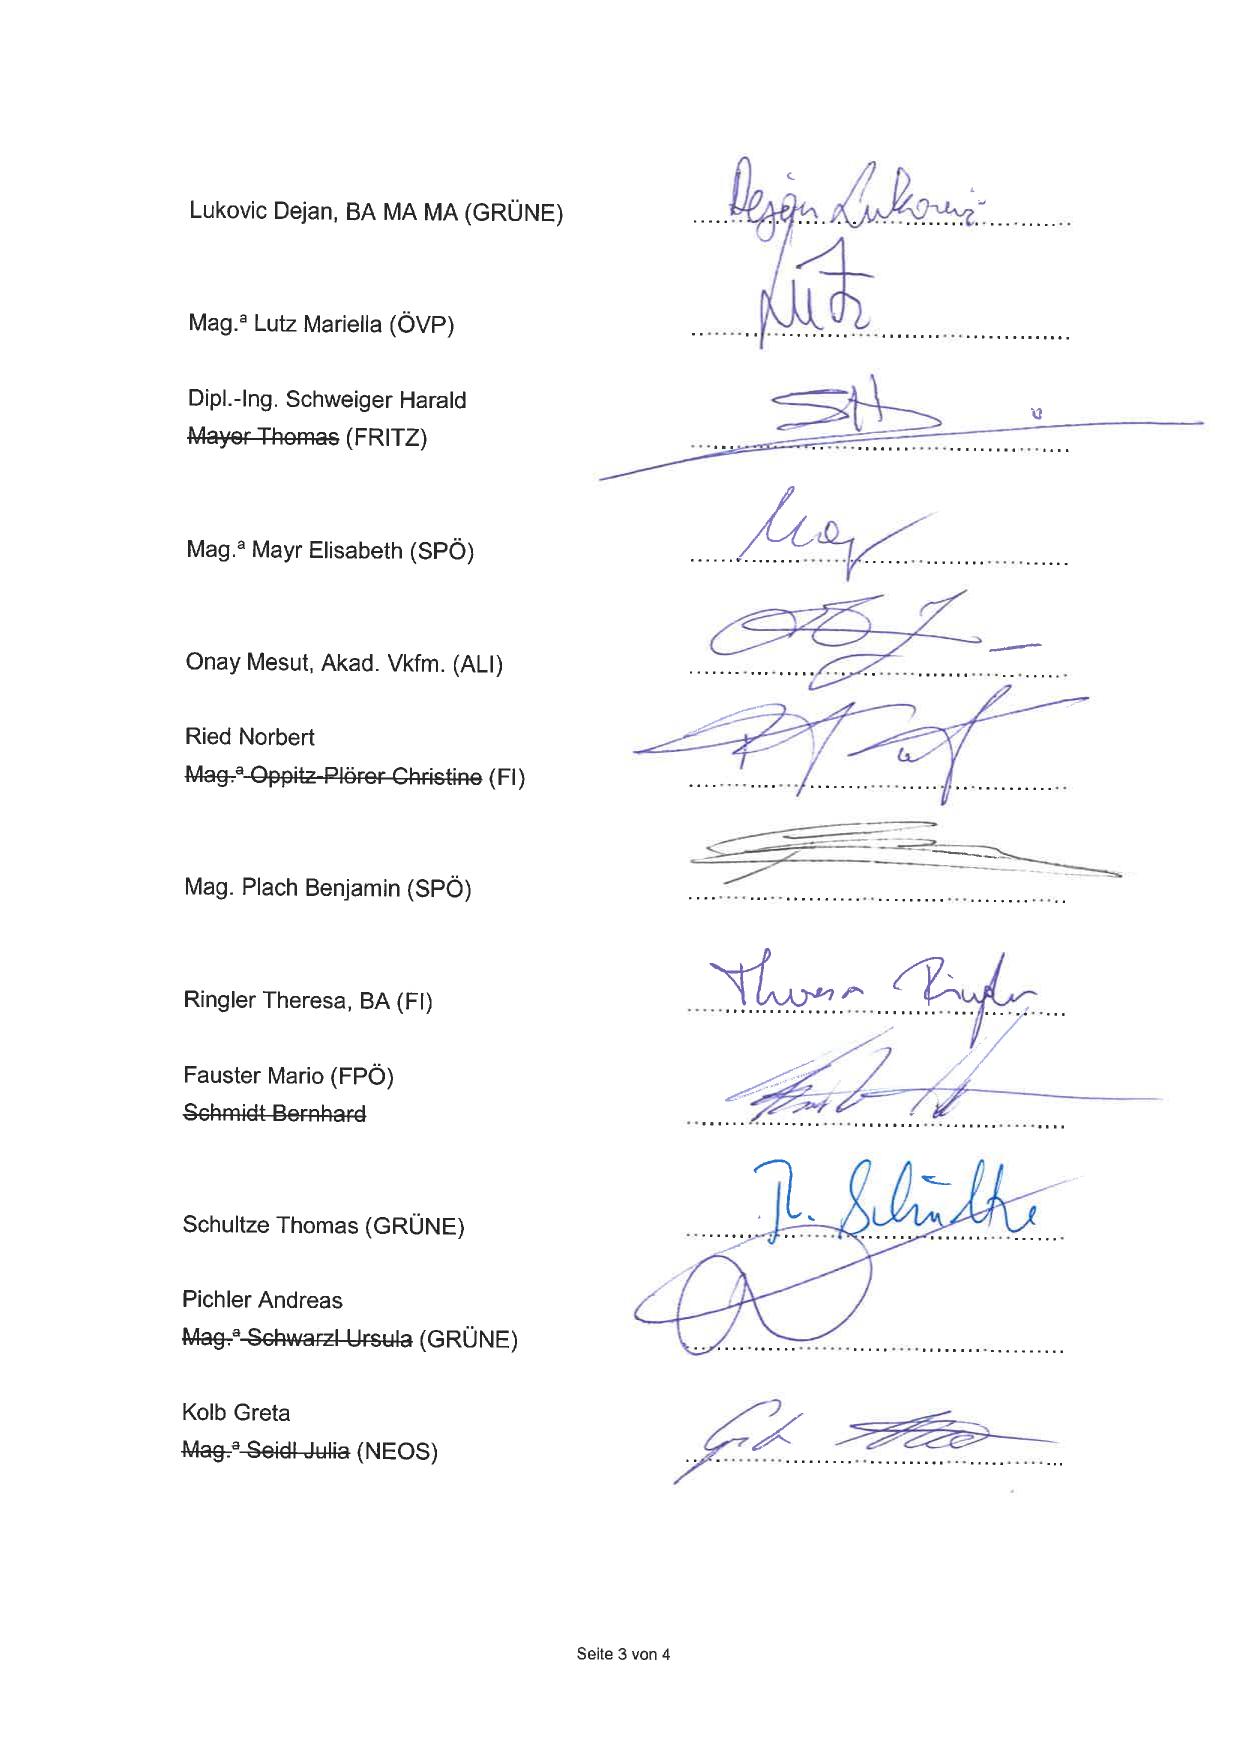 Lukovic Dejan, BA MA MA (GRÜNE)
Dejan Lukovic
Mag.ª Lutz Mariella (ÖVP)
Lutz
Dipl.-Ing. Schweiger Harald
Mayer Thomas (FRITZ)
Mag.ª Mayr Elisabeth (SPÖ)
May
Onay Mesut, Akad. Vkfm. (ALI)
Ried Norbert
Mag.ª Oppitz-Plörer Christine (FI)
Mag. Plach Benjamin (SPÖ)
Ringler Theresa, BA (FI)
Theresa Ringler
Fauster Mario (FPÖ)
Schmidt Bernhard
Schultze Thomas (GRÜNE)
Th. Schultze
Pichler Andreas
Mag.ª Schwarzl Ursula (GRÜNE)
Kolb Greta
Mag.ª Seidl Julia (NEOS)
Seite 3 von 4